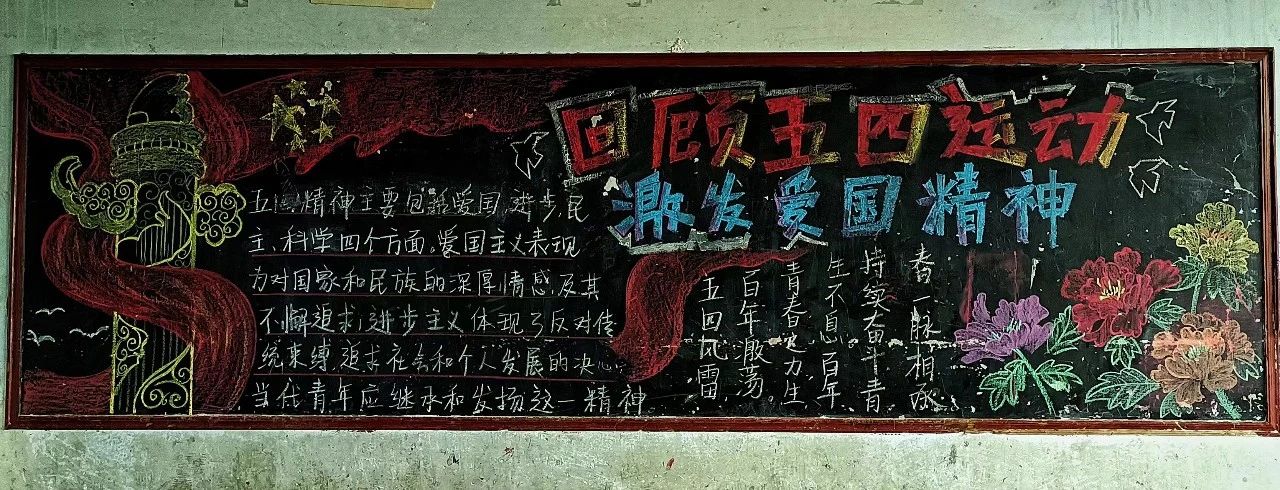 回顾五四运动
激发爱国精神
五四精神主要包括爱国、进步、民
主、科学四个方面。爱国主义表现
为对国家和民族的深厚情感及其
不懈追求,进步主义体现了反对传
统束缚追求社会和个人发展的决心
当代青年应继承和发扬这一精神
五四风雷
百年激荡
青春力生
生不息百年
持续奋斗青
春一脉相承